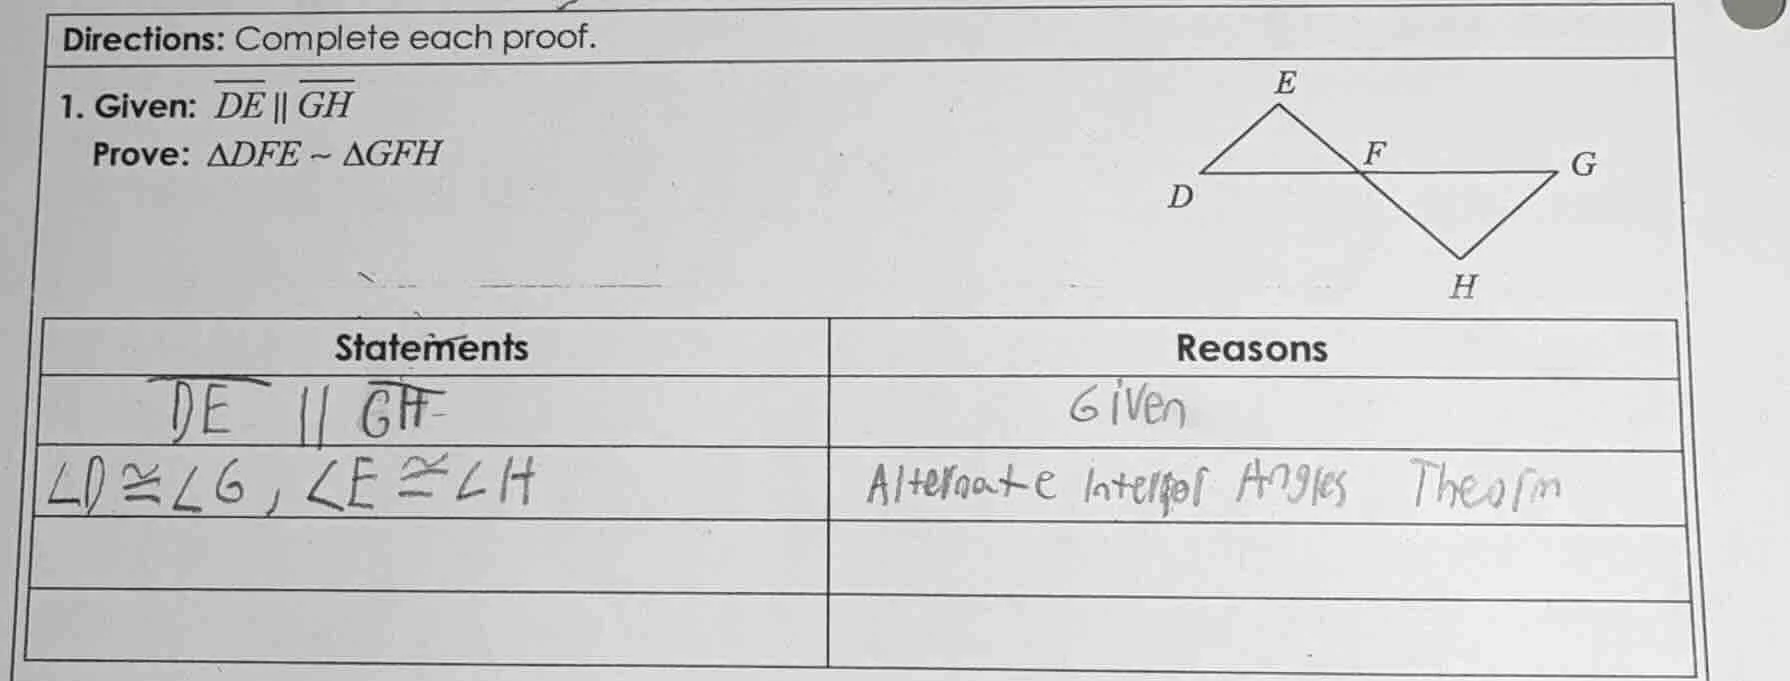 Directions: Complete each proof.
1. Given: DE || GH
Prove: ΔDFE ~ ΔGFH
E
F
G
D
H
Statements Reasons
DE || GH Given
∠D ≅ ∠G, ∠E ≅ ∠H Alternate Interior Angles Theorm